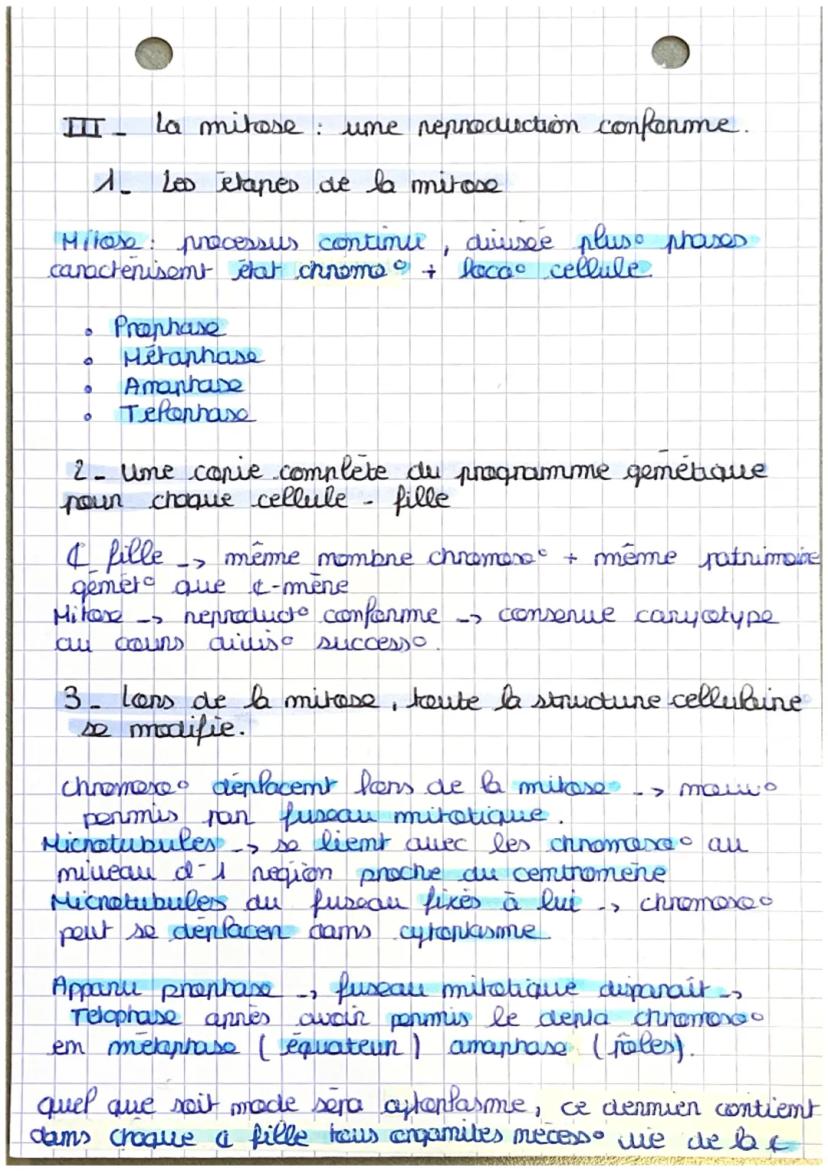 III - La mitose : une reproduction conforme.
1- Les étapes de la mitose
Mitose : processus continu, divisée plus° phases
caractérisent état chromo° + loca° cellule
• Prophase
• Métaphase
• Anaphase
• Télophase
2- Une copie complète du programme génétique
pour chaque cellule - fille
¢ fille -> même nombre chromoso° + même patrimoine
génét° que ¢-mère
Mitose -> reproduct° conforme -> conserve caryotype
au cours divis° success°.
3- Lors de la mitose, toute la structure cellulaire
se modifie.
chromoso° déplacent lors de la mitose -> mouv°
permis par fuseau mitotique.
Microtubules -> se lient avec les chromoso° au
niveau d-1 région proche du centromère
Microtubules du fuseau fixés à lui -> chromoso°
peut se déplacer dans cytoplasme
Apparu prophase -> fuseau mitotique disparaît ->
Télophase après avoir permis le dépla chromoso°
en métaphase (équateur) anaphase (pôles).
quel que soit mode sépa cytoplasme, ce dernier contient
dans chaque ¢ fille tous organites nécess° vie de la ¢